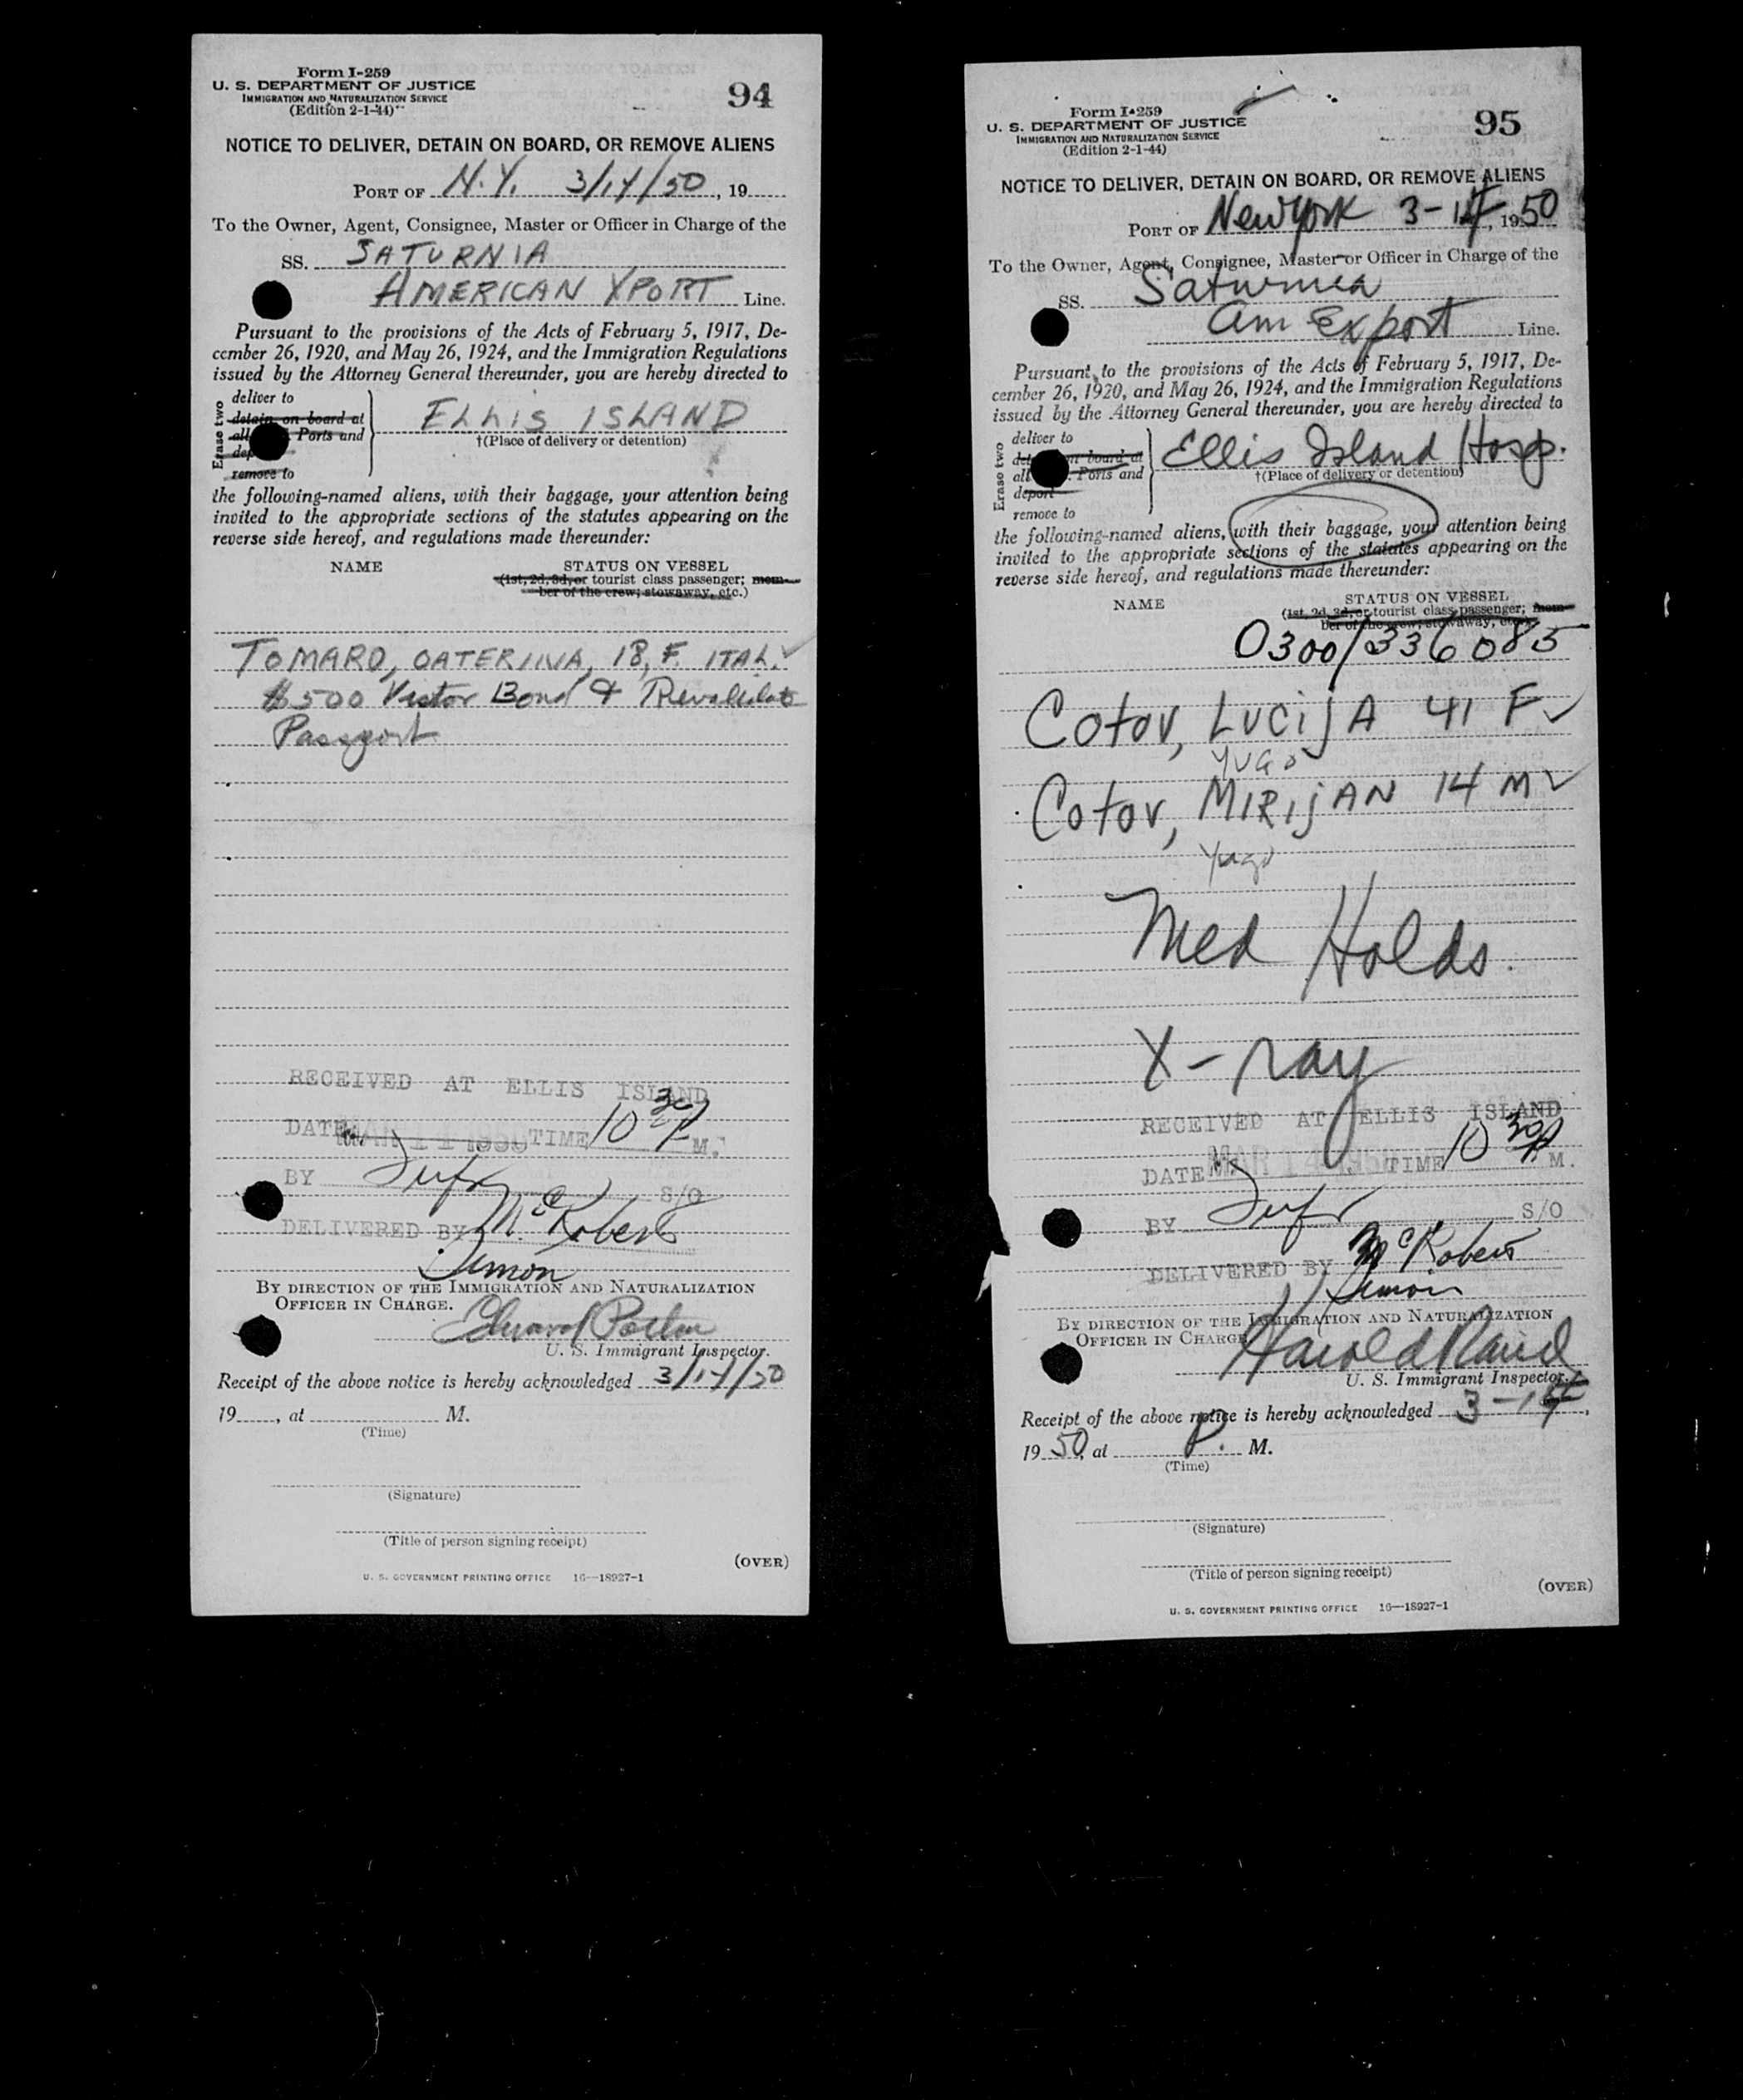 Form I-259
U. S. DEPARTMENT OF JUSTICE
IMMIGRATION AND NATURALIZATION SERVICE
(Edition 2-1-44)
94
NOTICE TO DELIVER, DETAIN ON BOARD, OR REMOVE ALIENS
PORT OF N.Y. 3/14/50, 19
To the Owner, Agent, Consignee, Master or Officer in Charge of the
SS. SATURNIA
AMERICAN XPORT Line.
Pursuant to the provisions of the Acts of February 5, 1917, De-
cember 26, 1920, and May 26, 1924, and the Immigration Regulations
issued by the Attorney General thereunder, you are hereby directed to
Erase two
deliver to
detain on board at
all Ports and
dep
remove to
ELLIS ISLAND
†(Place of delivery or detention)
the following-named aliens, with their baggage, your attention being
invited to the appropriate sections of the statutes appearing on the
reverse side hereof, and regulations made thereunder:
NAME STATUS ON VESSEL
(1st, 2d, 3d, or tourist class passenger; mem-
ber of the crew; stowaway, etc.)
TOMARO, CATERINA, 18, F. ITAL.
$500 Visitor Bond & Revalidate
Passport
RECEIVED AT ELLIS ISLAND
DATE MAR 14 1950 TIME 10 30 P M.
BY S/O
DELIVERED BY McRoberts
Simon
BY DIRECTION OF THE IMMIGRATION AND NATURALIZATION
OFFICER IN CHARGE.
U. S. Immigrant Inspector.
Receipt of the above notice is hereby acknowledged 3/14/50
19, at M.
(Time)
(Signature)
(Title of person signing receipt)
(OVER)
U. S. GOVERNMENT PRINTING OFFICE 16—18927-1
Form I-259
U. S. DEPARTMENT OF JUSTICE
IMMIGRATION AND NATURALIZATION SERVICE
(Edition 2-1-44)
95
NOTICE TO DELIVER, DETAIN ON BOARD, OR REMOVE ALIENS
PORT OF New York 3-14, 1950
To the Owner, Agent, Consignee, Master or Officer in Charge of the
SS. Saturnia
Am Export Line.
Pursuant to the provisions of the Acts of February 5, 1917, De-
cember 26, 1920, and May 26, 1924, and the Immigration Regulations
issued by the Attorney General thereunder, you are hereby directed to
Erase two
deliver to
det on board at
all Ports and
deport
remove to
Ellis Island Hosp.
†(Place of delivery or detention)
the following-named aliens, with their baggage, your attention being
invited to the appropriate sections of the statutes appearing on the
reverse side hereof, and regulations made thereunder:
NAME STATUS ON VESSEL
(1st, 2d, 3d, or tourist class passenger; mem-
ber of the crew; stowaway, etc.)
0300/336085
Cotov, LUCIJA 41 F
YUGO
Cotov, MIRIJAN 14 M
Yugo
Med Holds
X-ray
RECEIVED AT ELLIS ISLAND
DATE MAR 14 1950 TIME 10 30 P M.
BY S/O
DELIVERED BY McRoberts
Simon
BY DIRECTION OF THE IMMIGRATION AND NATURALIZATION
OFFICER IN CHARGE.
Harold
U. S. Immigrant Inspector.
Receipt of the above notice is hereby acknowledged 3-14,
1950, at P. M.
(Time)
(Signature)
(Title of person signing receipt)
(OVER)
U. S. GOVERNMENT PRINTING OFFICE 16—18927-1